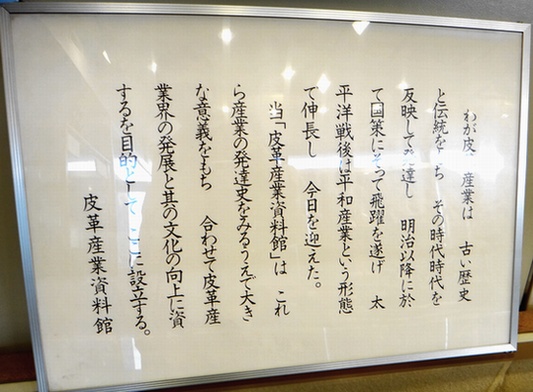 わが皮 産業は 古い歴史
と伝統を ち その時代時代を
反映して発達し 明治以降に於
て国策にそって飛躍を遂げ 太
平洋戦後は平和産業という形態
で伸長し 今日を迎えた。
当「皮革産業資料館」は これ
ら産業の発達史をみるうえで大き
な意義をもち 合わせて皮革産
業界の発展と其の文化の向上に資
するを目的として ここに設立する。
皮革産業資料館